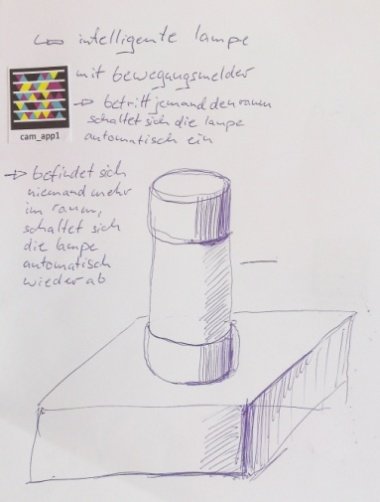 intelligente lampe
mit bewegungsmelder
→ betritt jemand den raum
schaltet sich die lampe
automatisch ein
cam_app1
→ befindet sich
niemand mehr
im raum,
schaltet sich
die lampe
automatisch
wieder ab